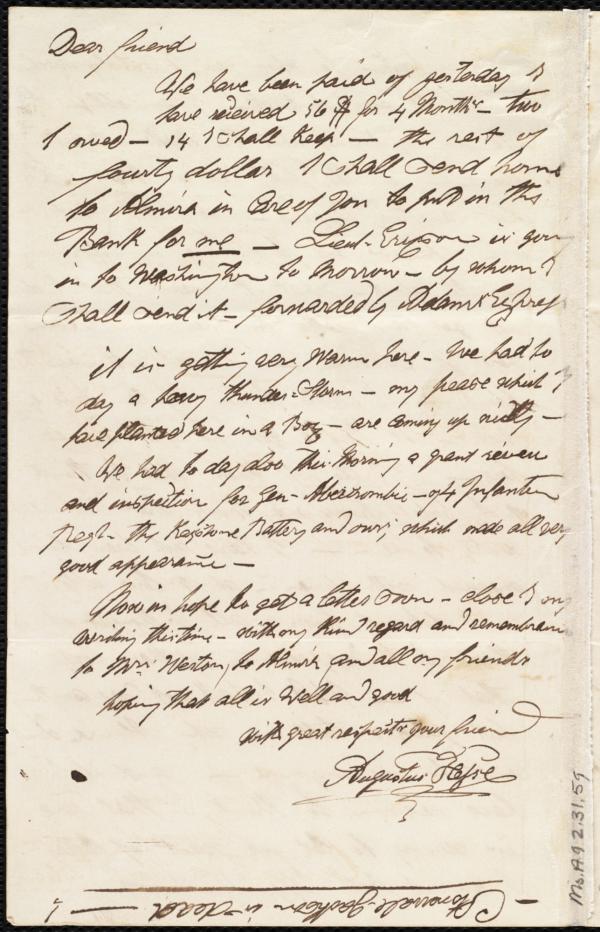 Dear friend
We have been paid of yesterday I
have received 56 $ for 4 Months - two
I owed - 14 I shall Keep - the rest of
fourty dollar I shall send home
to Almira in Care of You to put in the
Bank for me - Lieut. Ericson is going
in to Washington to morrow - by whom I
shall send it - forwarded by Adams Express
it is getting very Warm here - We had to
day a heavy thunder-Storm - my pease which I
have planted here in a Box - are coming up nicely -
We had to day also this Morning a grant revew
and inspection for Gen - Abercrombie - of 4 Infanterie
Regt - the Keystone Battery and our; which made all very
good appearance -
Now in hope to get a letter soon - close I my
writing this time - with my Kind regard and remembrance
to Mrs. Weston, to Almira and all my friends
hoping that all is Well and good
with great respects your friend
Augustus
Stonewall-Jackson is dead
Ms.A.9.2.31.59